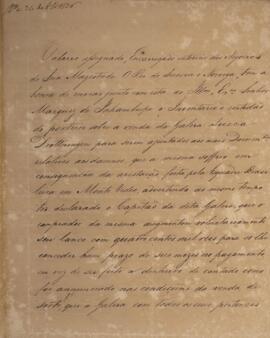 O abaixo assignado, Encarregado interino dos Negocios
de Sua Magestade O Rei de Suecia e Noroega, tem a
honra de enviar junto com esta ao Illmo. e Exmo. Senhor
Marquez de Inhambupe o Inventario e certidão
do porteiro sobre a venda da Galera Sueca
Drottningen para serem ajuntados aos mais Documentos
relativos aos damnos que a mesma soffreu em
consequencia da arrestação feita pela Esquadra Brasi
leira em Monte Video advertindo ao mesmo tempo
ter declarado o Capitão da dita Galera, que o
comprador da mesma augmentou voluntariamente
seu lance com quatro centos mil reis para se lhe
conceder hum prazo de seis mezes no pagamento
em vez de ser feito a dinheiro de contado como
foi annunciado nas condições da venda de
sorte que a Galera com todos os seus pertences